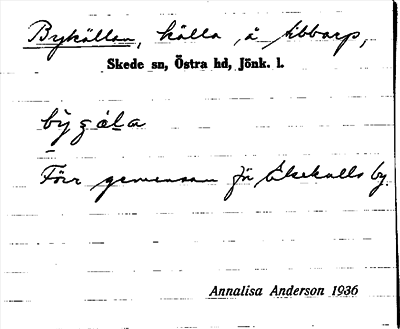 Bykällan, källa å Ubbarp,
Skede sn, Östra hd, Jönk. l.
Förr gemensam för Älsekulls by.
Annalisa Anderson 1936